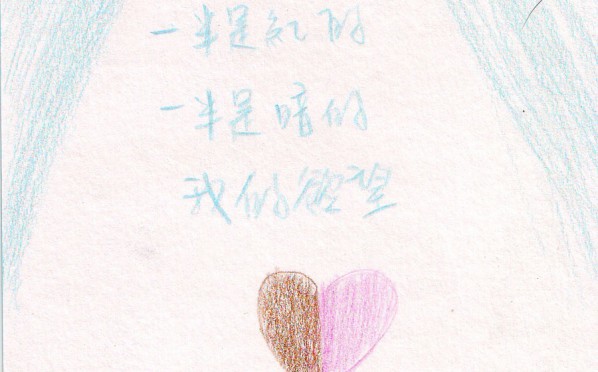 一半是紅的
一半是暗的
我的慾望